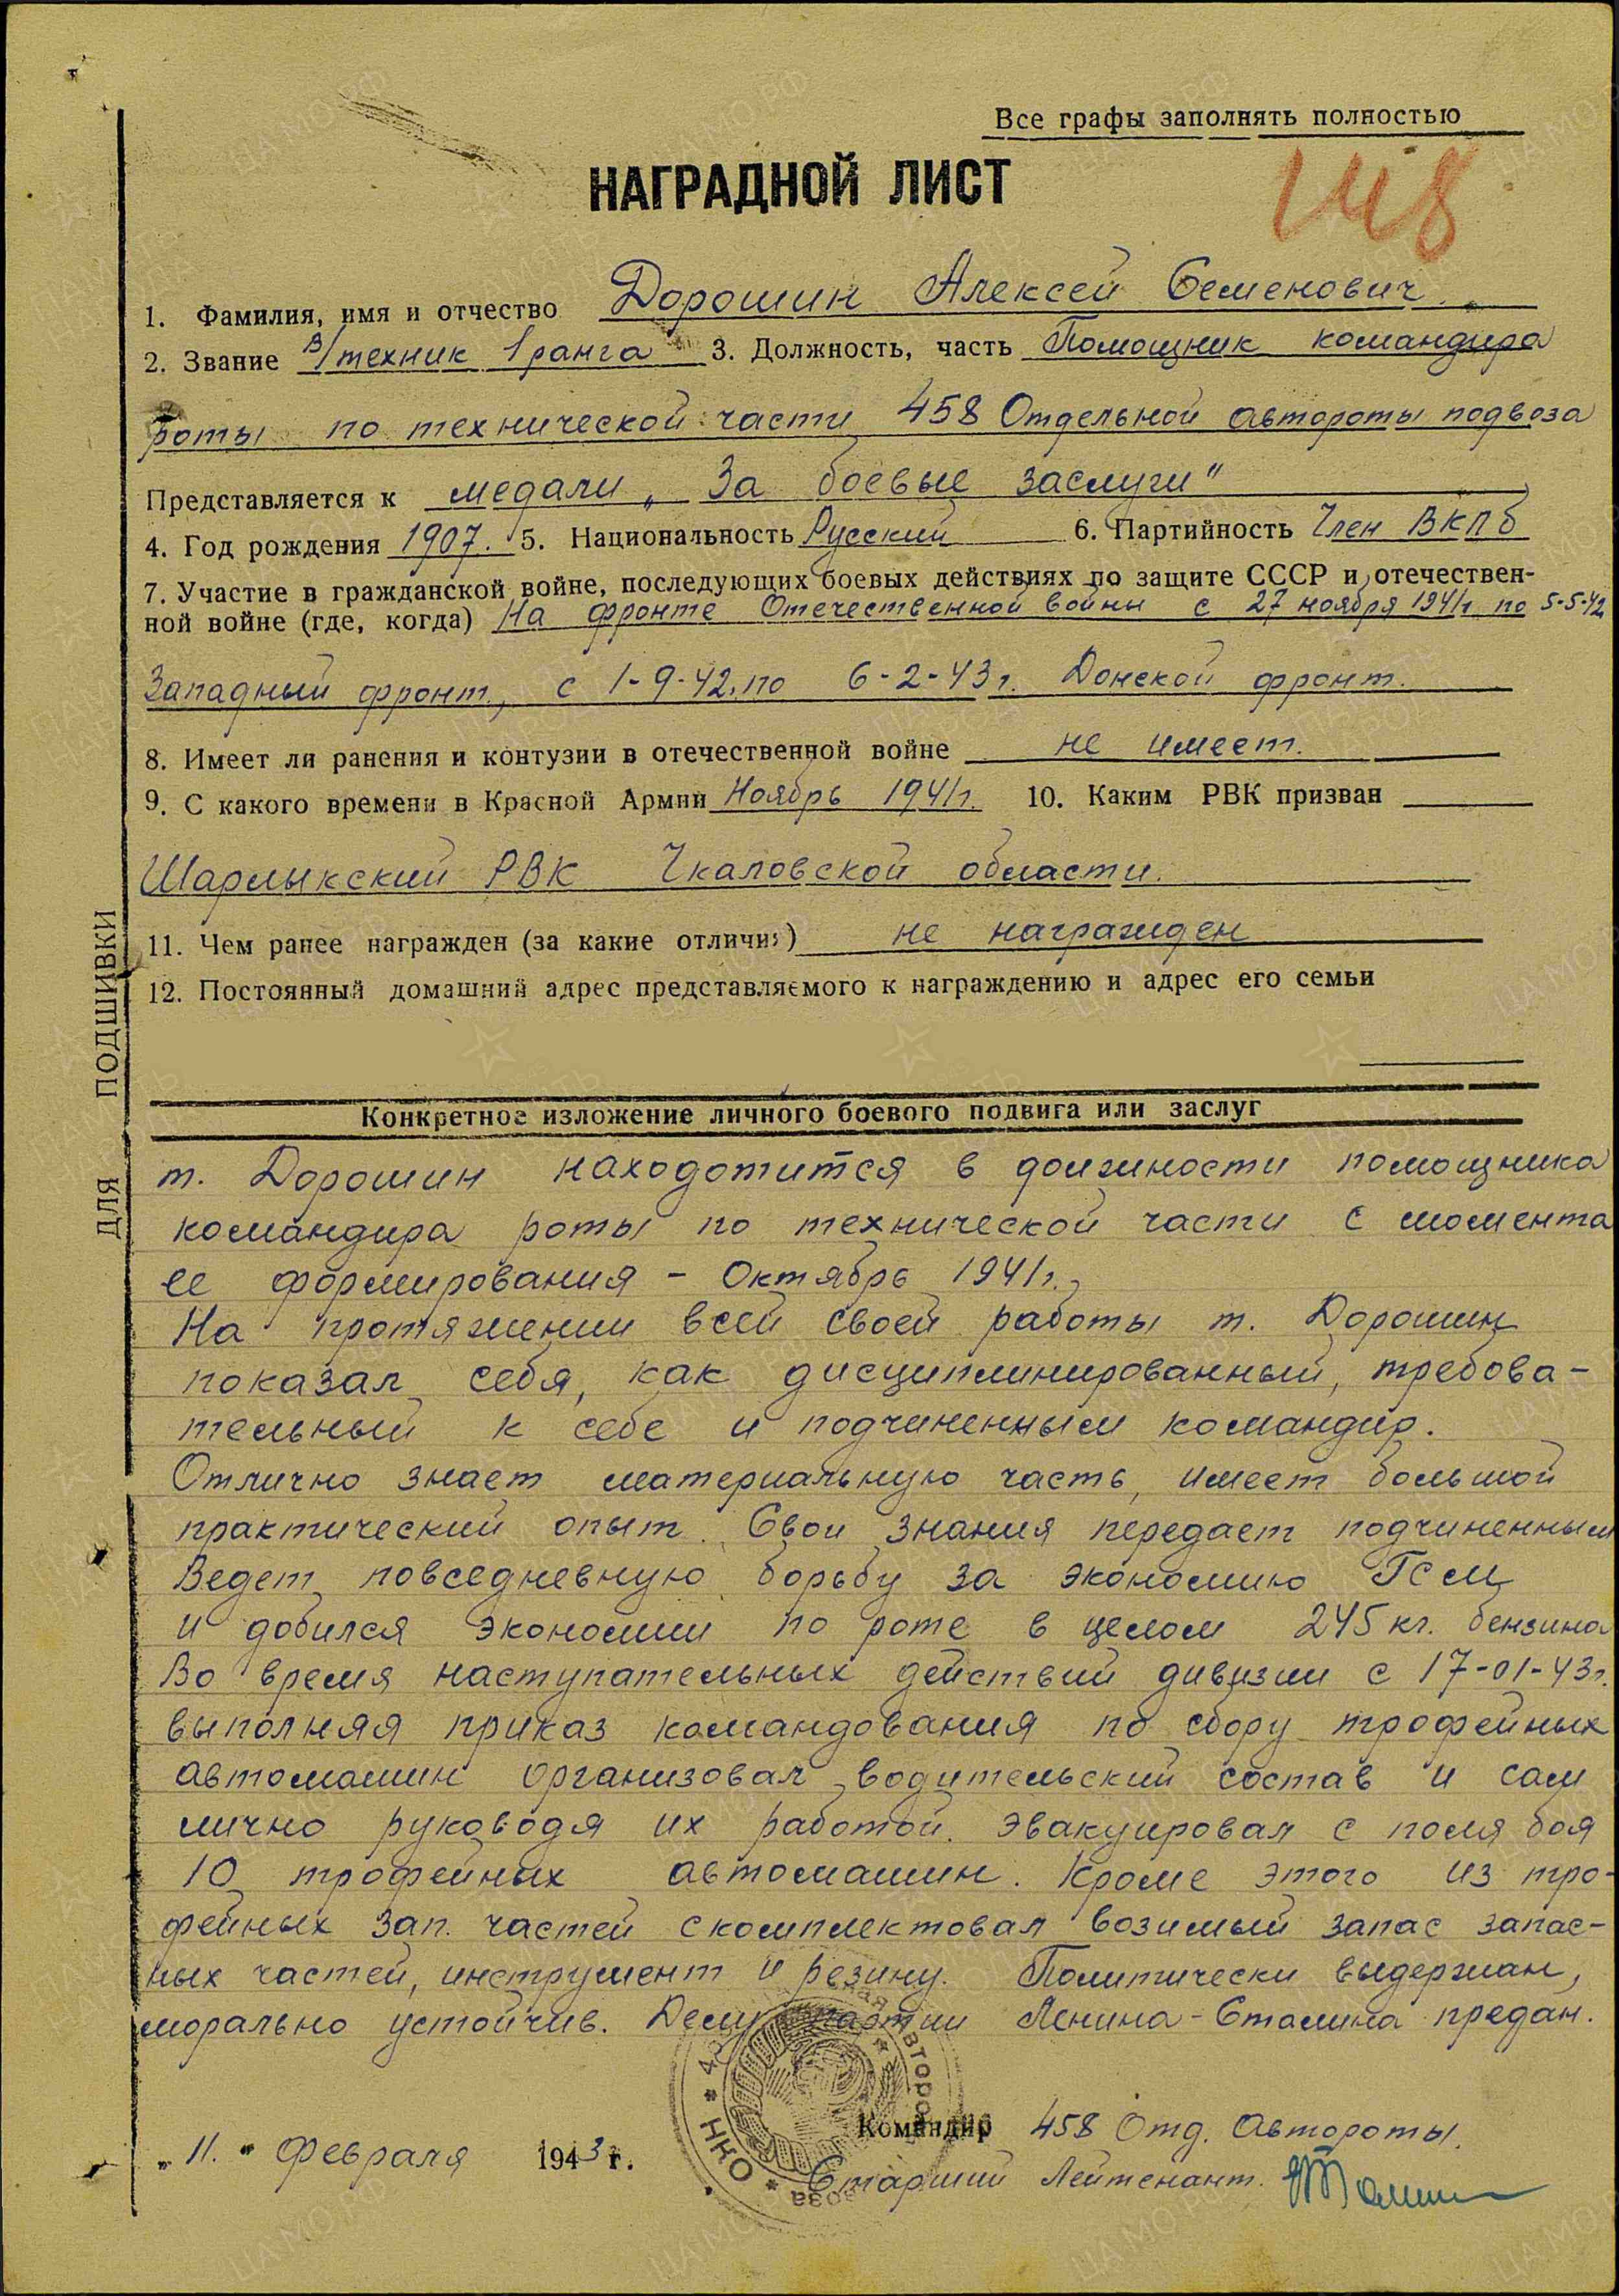 Все графы заполнять полностью
НАГРАДНОЙ ЛИСТ
1. Фамилия, имя и отчество Дорошин Алексей Семенович
2. Звание в/техник 1 ранга 3. Должность, часть Помощник командира
роты по технической части 458 Отдельной автороты подвоза
Представляется к медали „За боевые заслуги"
4. Год рождения 1907. 5. Национальность Русский 6. Партийность Член ВКПб
7. Участие в гражданской войне, последующих боевых действиях по защите СССР и отечествен-
ной войне (где, когда) На фронте Отечественной войны с 27 ноября 1941г по 5-5-42
Западный фронт, с 1-9-42. по 6-2-43г. Донской фронт.
8. Имеет ли ранения и контузии в отечественной войне не имеет.
9. С какого времени в Красной Армии Ноябрь 1941г. 10. Каким РВК призван
Шарлыкский РВК Чкаловской области.
11. Чем ранее награжден (за какие отличия) не награжден
12. Постоянный домашний адрес представляемого к награждению и адрес его семьи
ДЛЯ ПОДШИВКИ
Конкретное изложение личного боевого подвига или заслуг
т. Дорошин находотится в должности помощника
командира роты по технической части с момента
ее формирования - Октябрь 1941г.
На протяжении всей своей работы т. Дорошин
показал себя, как дисциплинированный, требова-
тельный к себе и подчиненным командир.
Отлично знает материальную часть, имеет большой
практический опыт. Свои знания передает подчиненным
Ведет повседневную борьбу за экономию ГСМ
и добился экономии по роте в целом 245 кг. бензина
Во время наступательных действий дивизии с 17-01-43г.
выполняя приказ командования по сбору трофейных
автомашин организовал водительский состав и сам
лично руководя их работой. эвакуировал с поля боя
10 трофейных автомашин. Кроме этого из тро-
фейных зап. частей скомплектовал возимый запас запас-
ных частей, инструмент и резину. Политически выдержан,
морально устойчив. Делу партии Ленина - Сталина предан.
НКО
Командир 458 Отд. Автороты.
„11." февраля 1943 г. Старший Лейтенант.